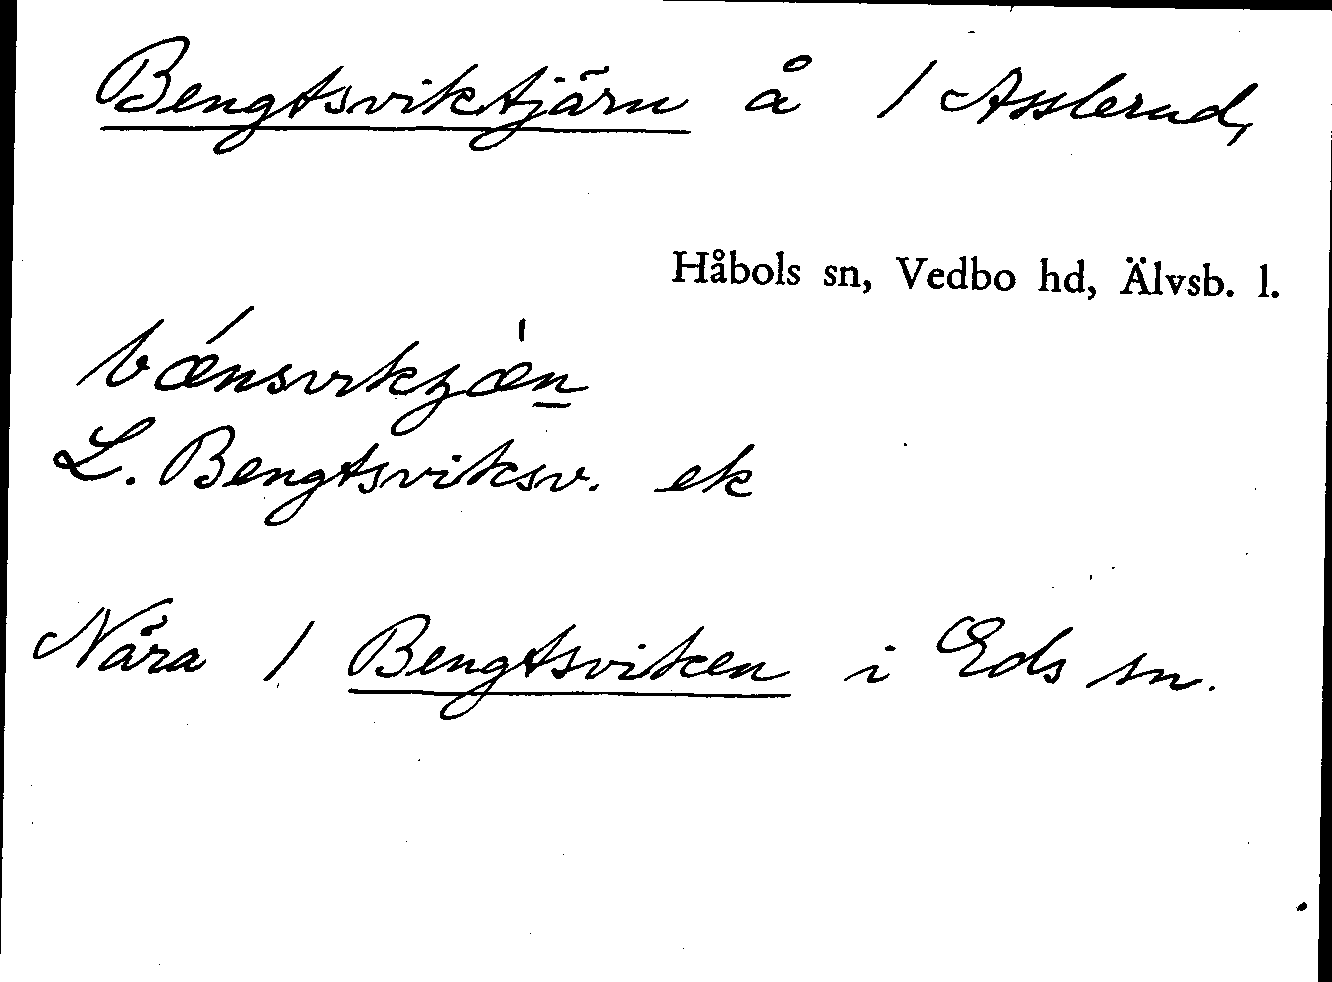 Bengtsviktjärn å / Asslerud,
Håbols sn, Vedbo hd, Älvsb. l.
bǽnsvikjæ̀n
L. Bengtsviksv. ek
Nära / Bengtsviken i Eds sn.